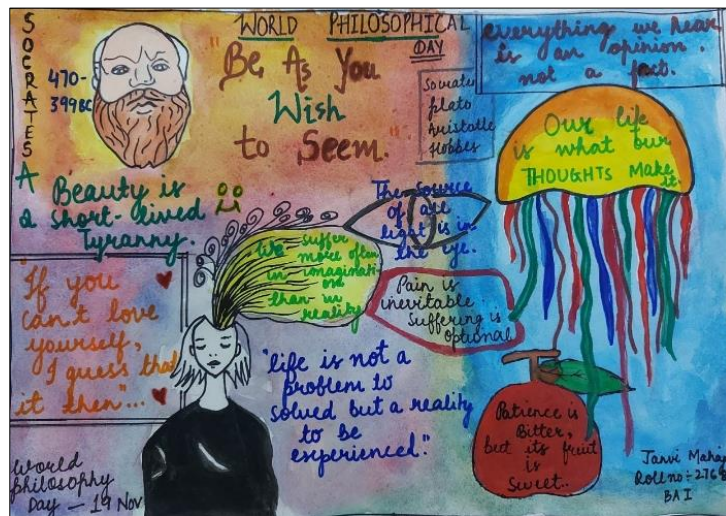 SOCRATES
470-
399BC
WORLD PHILOSOPHICAL
DAY
"Be As You
Wish
to Seem."
Socrates
Plato
Aristotle
Hobbes
everything we hear
is an opinion.
not a fact.
Our life
is what our
THOUGHTS Make
it.
A Beauty is
a short-lived
Tyranny.
The source
of all
light is in
the eye.
We suffer
more often
in imaginati-
on
than in
reality
Pain is
inevitable
Suffering is
optional
"If you
can't love
yourself,
I guess that
it then"...
"life is not a
problem to
solved but a reality
to be
experienced."
Patience is
Bitter,
but its fruit
is
Sweet..
World
Philosophy
Day — 19 Nov
Janvi
Roll no ÷ 2768
BA I